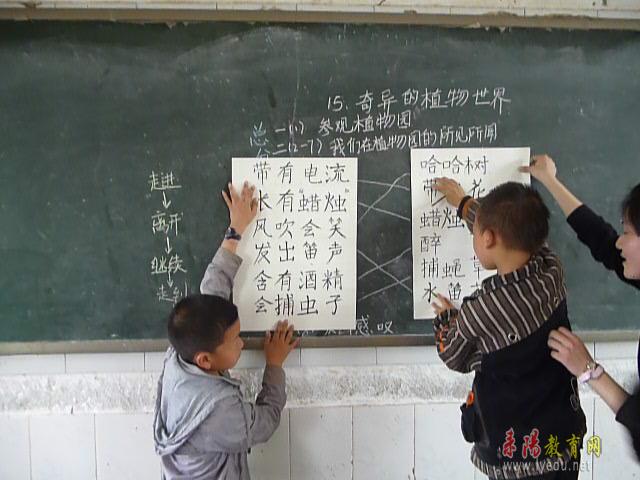 15. 奇异的植物世界
总 一(1) 参观植物园
二(2-7) 我们在植物园的所见所闻
走进
离开
继续
走到
带有电流
长有"蜡烛"
风吹会笑
发出笛声
含有酒精
会捕虫子
哈哈树
带 花
蜡烛
醉
捕蝇草
水笛
感叹
耒阳教育网
www.lyedu.net